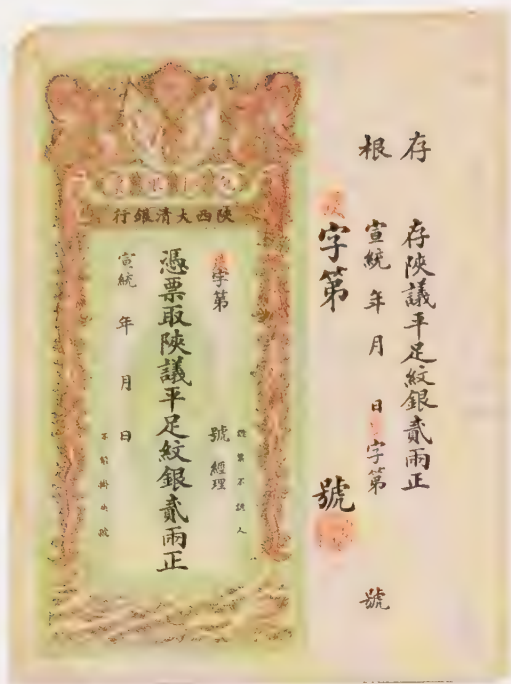 存根
存陝議平足紋銀貳兩正
宣統 年 月 日 字第 號
字第 號
陝西大清銀行
認票不認人
字第 號 經理
憑票取陝議平足紋銀貳兩正
宣統 年 月 日
不能掛失號